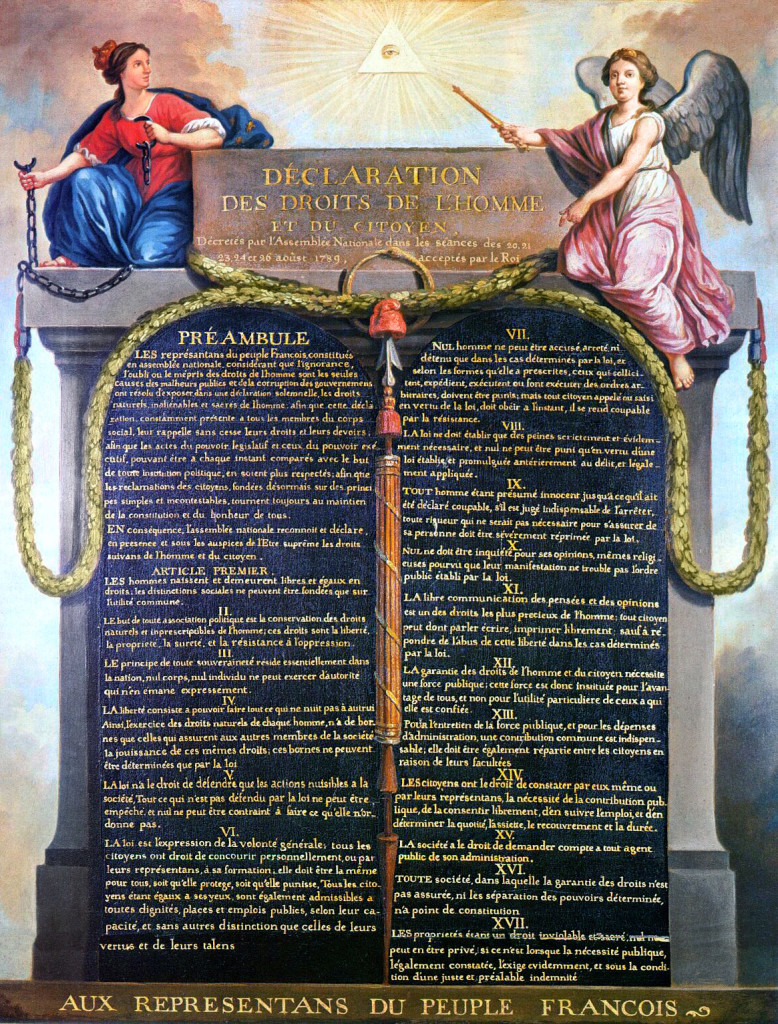 DÉCLARATION
DES DROITS DE L'HOMME
ET DU CITOYEN,
Décretés par l'Assemblée Nationale dans les séances des 20, 21
23, 24 et 26 août 1789, acceptés par le Roi
PRÉAMBULE
LES représantans du peuple François, constitués
en assemblée nationale, considérant que l'ignorance,
l'oubli ou le mépris des droits de l'homme sont les seules
causes des malheurs publics et de la corruption des gouvernemens
ont résolu d'exposer dans une déclaration solemnelle, les droits
naturels, inaliénables et sacrés de l'homme; afin que cette décla
ration, constamment présente a tous les membres du corps
social, leur rappelle sans cesse leurs droits et leurs devoirs;
afin que les actes du pouvoir législatif et ceux du pouvoir exé
cutif, pouvant être a chaque instant comparés avec le but
de toute institution politique, en soient plus respectés; afin que
les reclamations des citoyens, fondées désormais sur des princi
pes simples et incontestables, tournent toujours au maintien
de la constitution et du bonheur de tous.
EN conséquence, l'assemblée nationale reconnoit et déclare,
en presence et sous les auspices de l'Etre suprême les droits
suivans de l'homme et du citoyen.
ARTICLE PREMIER.
LES hommes naissent et demeurent libres et égaux en
droits, les distinctions sociales ne peuvent être fondées que sur
l'utilité commune.
II.
LE but de toute association politique est la conservation des droits
naturels et inprescriptibles de l'homme; ces droits sont la liberté,
la propriété, la sureté, et la résistance à l'oppression.
III.
LE principe de toute souveraineté réside essentiellement dans
la nation, nul corps, nul individu ne peut exercer d'autorité
qui n'en émane expressement.
IV.
LA liberté consiste a pouvoir faire tout ce qui ne nuit pas à autrui
Ainsi, l'exercice des droits naturels de chaque homme, n'a de bor-
nes que celles qui assurent aux autres membres de la société
la jouissance de ces mêmes droits; ces bornes ne peuvent
être déterminées que par la loi
V.
LA loi n'a le droit de défendre que les actions nuisibles a la
société, Tout ce qui n'est pas défendu par la loi ne peut être
empêché, et nul ne peut être contraint à faire ce qu'elle n'or-
donne pas.
VI.
LA loi est l'expression de la volonté générale; tous les
citoyens ont droit de concourir personnellement, ou par
leurs représentans, à sa formation; elle doit être la même
pour tous, soit qu'elle protege, soit qu'elle punisse, Tous les cito-
yens étant égaux a ses yeux, sont également admissibles a
toutes dignités, places et emplois publics, selon leur ca-
pacité, et sans autres distinction que celles de leurs
vertus et de leurs talens
VII.
NUL homme ne peut être accusé, arreté, ni
détenu que dans les cas déterminés par la loi, et
selon les formes qu'elle a prescrites, ceux qui sollici-
tent, expédient, exécutent ou font exécuter des ordres ar-
bitraires, doivent être punis; mais tout citoyen appelé ou saisi
en vertu de la loi, doit obéir a l'instant, il se rend coupable
par la résistance.
VIII.
LA loi ne doit établir que des peines strictement et évidem-
ment nécessaire, et nul ne peut être puni qu'en vertu d'une
loi établie, et promulguée antérierement au délit, et légale-
ment appliquée.
IX.
TOUT homme étant présumé innocent jusqu'à ce qu'il ait
été déclaré coupable, s'il est jugé indispensable de l'arrêter,
toute rigueur qui ne serait pas nécessaire pour s'assurer de
sa personne doit être sévèrement réprimée par la loi.
X.
NUL ne doit être inquiété pour ses opinions, mêmes religi-
euses pourvu que leur manifestation ne trouble pas l'ordre
public établi par la loi.
XI.
LA libre communication des pensées et des opinions
est un des droits les plus precieux de l'homme; tout citoyen
peut dont parler écrire, imprimer librement; sauf a ré-
pondre de l'abus de cette liberté dans les cas déterminés
par la loi.
XII.
LA garantie des droits de l'homme et du citoyen nécessite
une force publique; cette force est donc instituée pour l'avan-
tage de tous, et non pour l'utilité particulière de ceux a qui
elle est confiée.
XIII.
Pour l'entretien de la force publique, et pour les dépenses
d'administration, une contribution commune est indispen-
sable; elle doit être également répartie entre les citoyens en
raison de leurs facultées
XIV.
LES citoyens ont le droit de constater par eux même ou
par leurs représentans, la nécessité de la contribution pub-
lique, de la consentir librement, d'en suivre l'emploi, et d'en
déterminer la quotité, l'assiete, le recouvrement et la durée.
XV.
LA société a le droit de demander compte a tout agent
public de son administration.
XVI.
TOUTE société, dans laquelle la garantie des droits n'est
pas assurée, ni les séparation des pouvoirs déterminée,
n'a point de constitution
XVII.
LES proprietés étant un droit inviolable et sacré, nul ne
peut en être privé, si ce n'est lorsque la nécessité publique,
légalement constatée, l'exige evidemment, et sous la condi-
tion d'une juste et préalable indemnité
AUX REPRESENTANS DU PEUPLE FRANCOIS